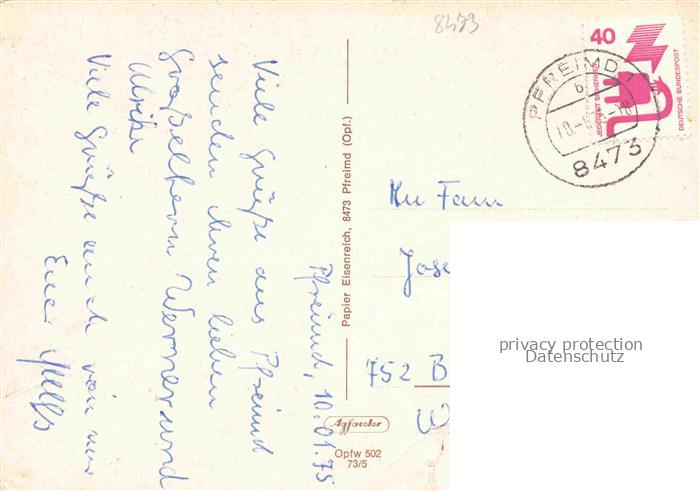 8473
Pfreimd, 10.01.75
Viele Grüße aus Pfreimd
senden ihren lieben
Großeltern Werner und
Ulrike
Viele Grüße auch von
Euer
Papier Eisenreich, 8473 Pfreimd (Opf.)
Agfacolor
Opfw 502
73/5
40
JEDERZEIT SICHERHEIT
DEUTSCHE BUNDESPOST
PFREIMD
b
8473
Fam
Jose
752 B
W
privacy protection
Datenschutz